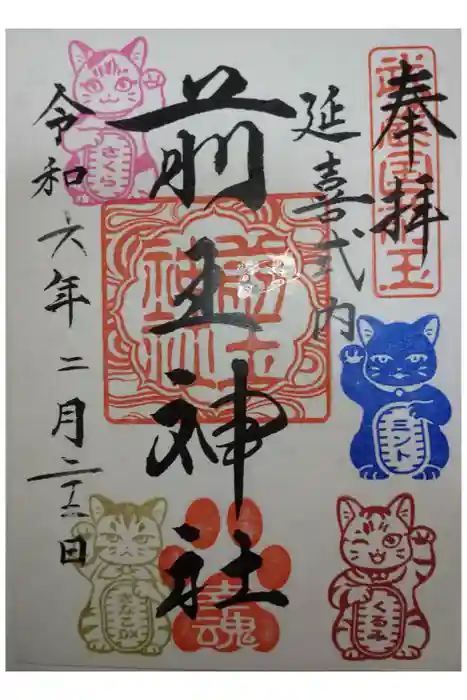 奉拝
武蔵国前玉
延喜式内
前玉神社
前玉神社
令和六年二月二十二日
さくら
ミント
きなこ
くるみ
幸魂